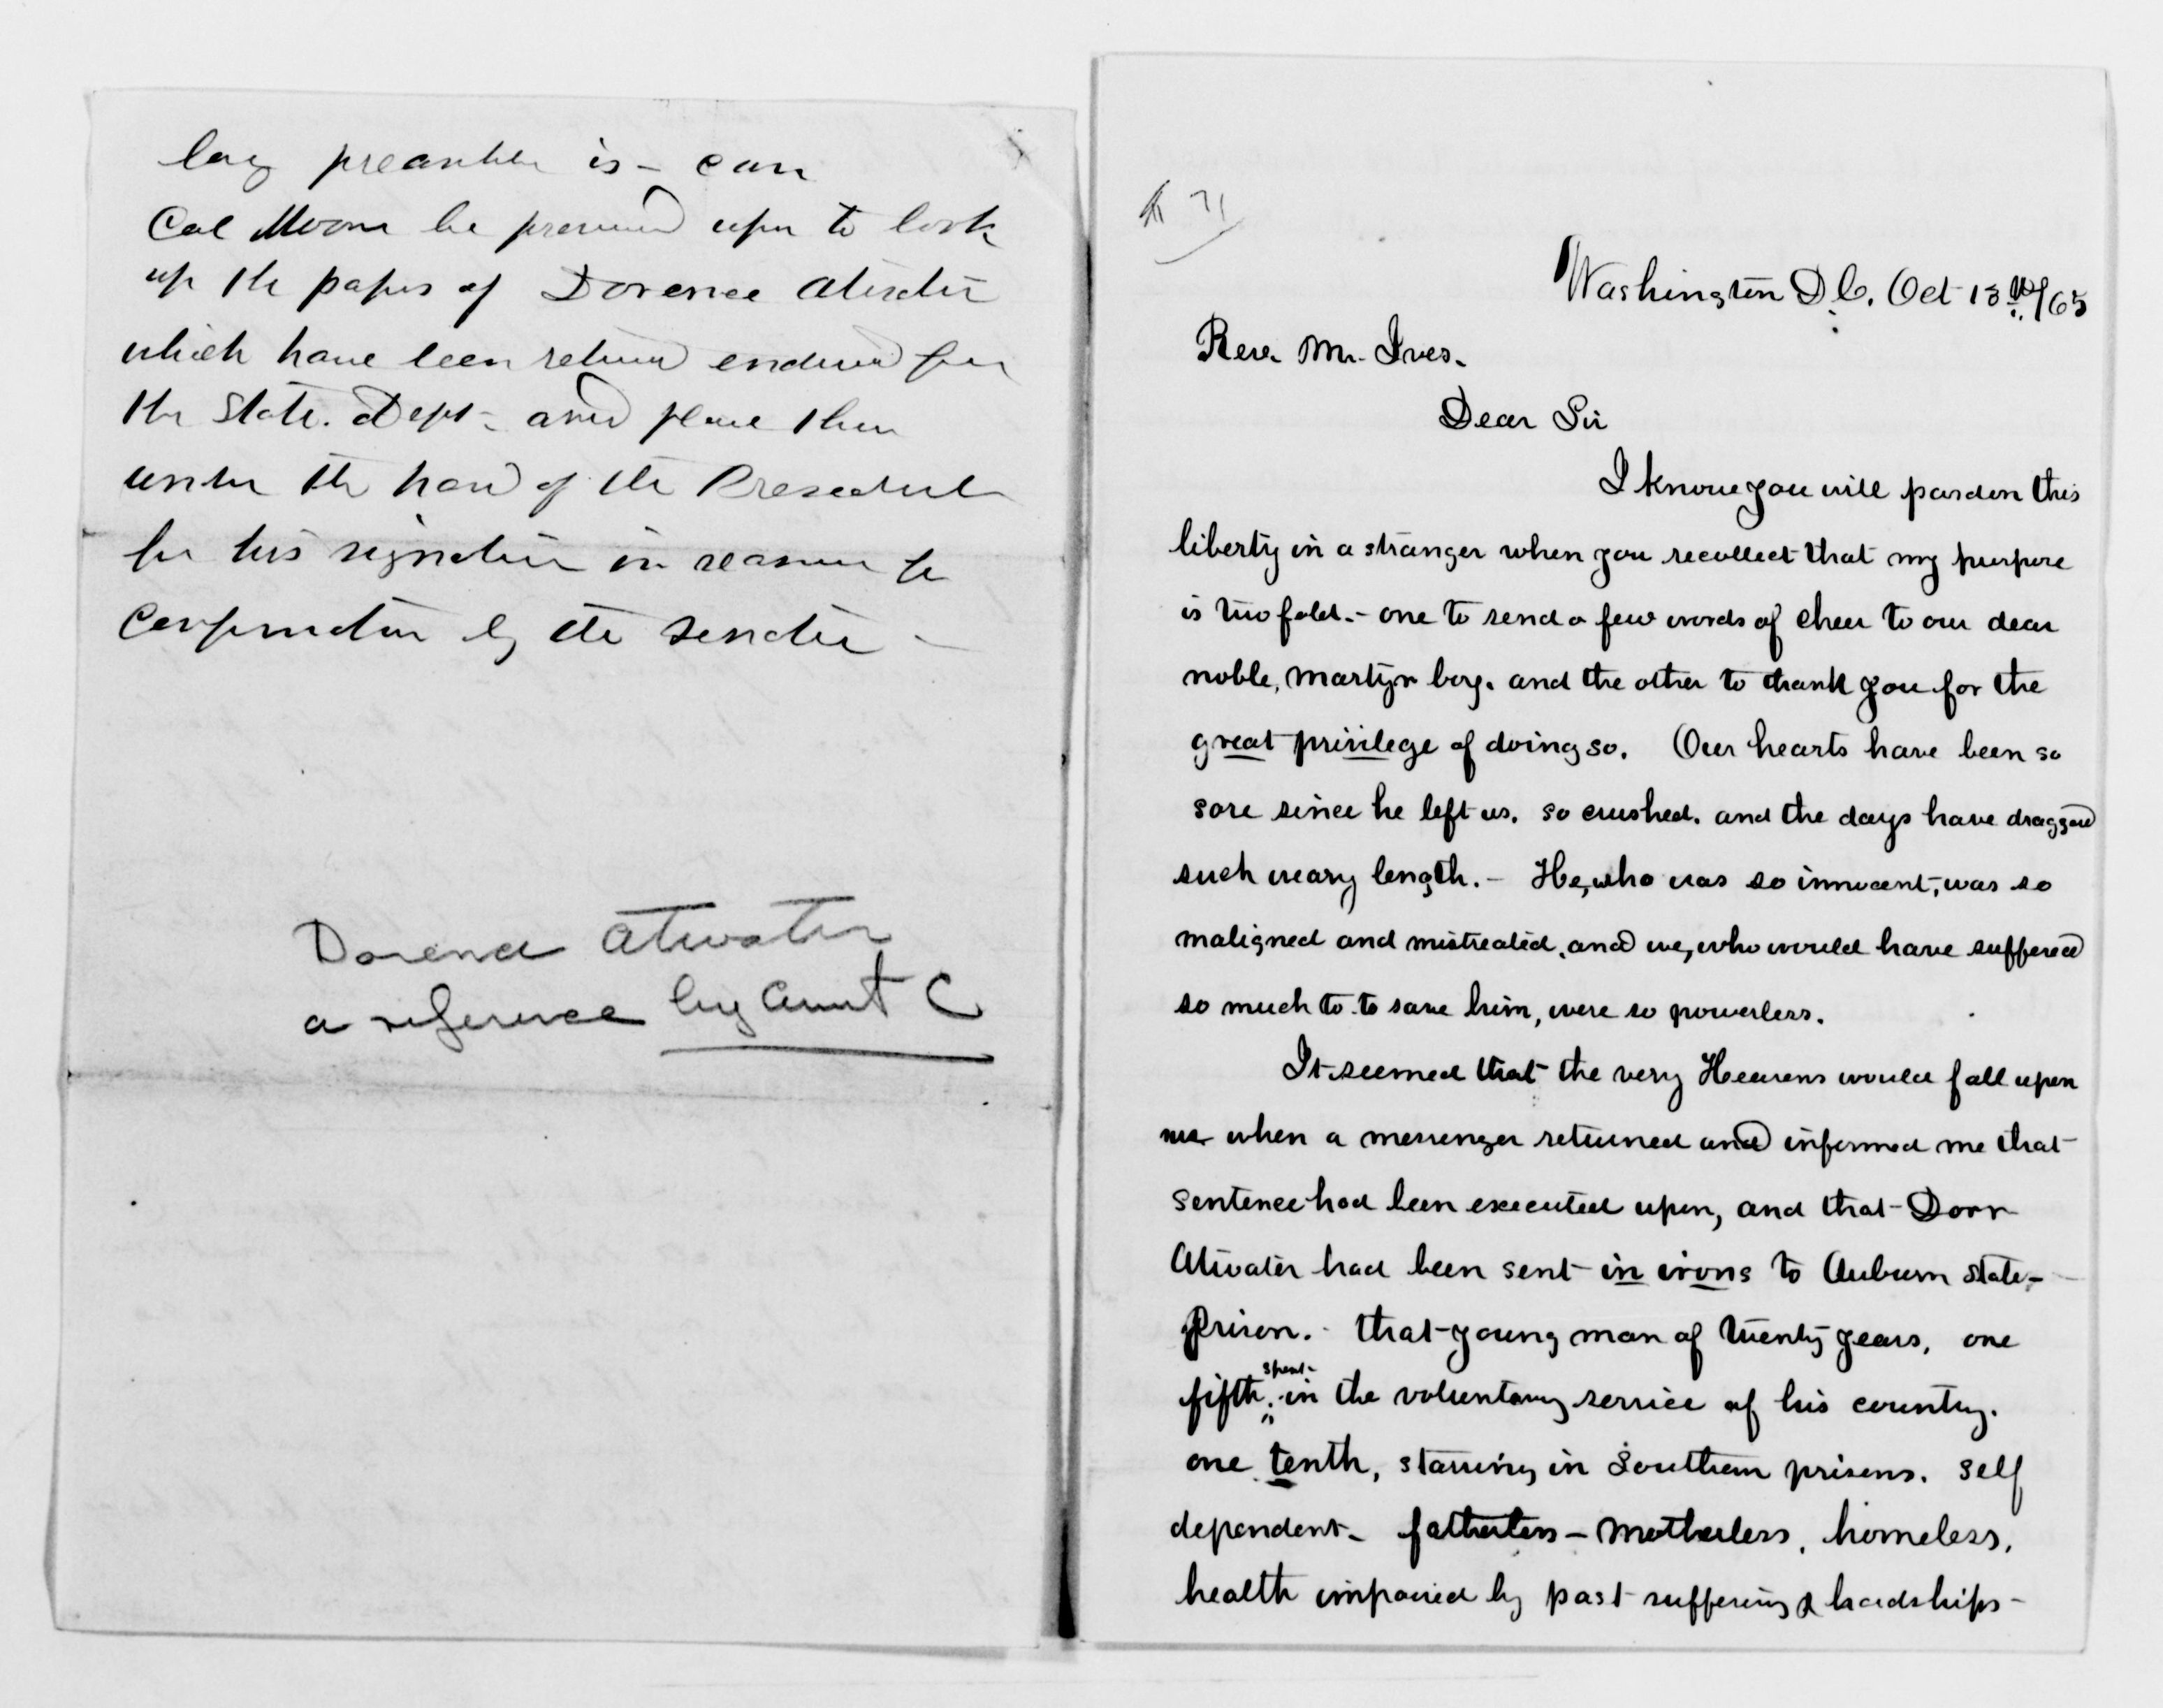 long preamble is – can
Col Moore be prevailed upon to look
up the papers of Dorence Atwater
which have been returned endorsed from
the State. Dept – and place them
under the hand of the President
for his signature in season for
Confirmation by the Senate –
Dorence Atwater
a reference by Aunt C
Washington D.C. Oct 13th/65
Rev. Mr. Ives.
Dear Sir
I know you will pardon this
liberty in a stranger when you recollect that my purpose
is two fold. – one to send a few words of cheer to our dear
noble, martyr boy. and the other to thank you for the
great privilege of doing so. Our hearts have been so
sore since he left us. so crushed. and the days have dragged
such weary length. – He, who was so innocent, was so
maligned and mistreated, and we, who would have suffered
so much to to save him, were so powerless.
It seemed that the very Heavens would fall upon
me when a messenger returned and informed me that
sentence had been executed upon, and that Dorr
Atwater had been sent in irons to Auburn State –
Prison. – that young man of twenty years, one
fifth, spent in the voluntary service of his country.
one tenth, starving in Southern prisons. self
dependent – fatherless – motherless, homeless,
health impaired by past suffering & hardships –